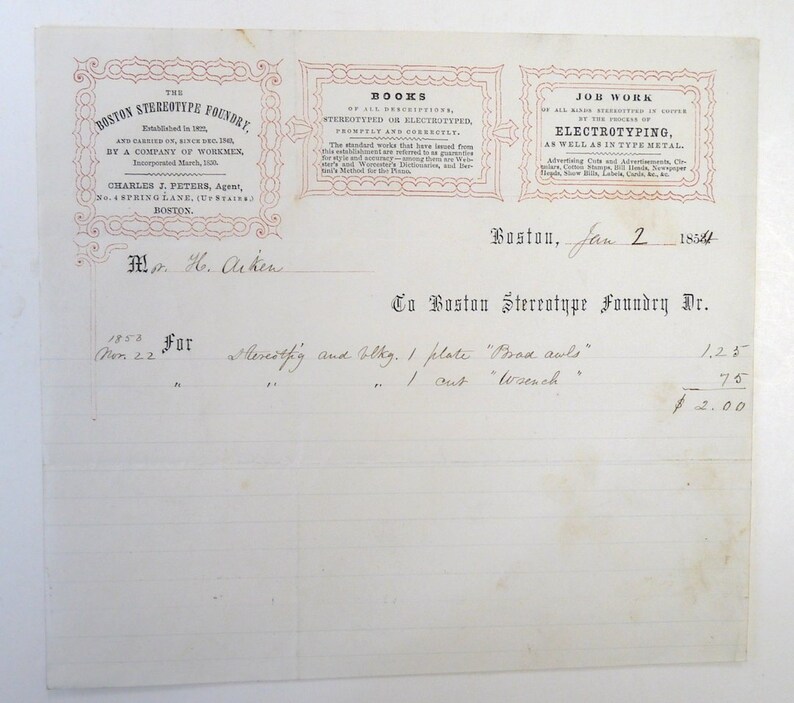 THE
BOSTON STEREOTYPE FOUNDRY,
Established in 1822,
AND CARRIED ON, SINCE DEC. 1843,
BY A COMPANY OF WORKMEN,
Incorporated March, 1850.
CHARLES J. PETERS, Agent,
No. 4 SPRING LANE, (UP STAIRS.)
BOSTON.
BOOKS
OF ALL DESCRIPTIONS,
STEREOTYPED OR ELECTROTYPED,
PROMPTLY AND CORRECTLY.
The standard works that have issued from
this establishment are referred to as guaranties
for style and accuracy—among them are Web-
ster's and Worcester's Dictionaries, and Ber-
tini's Method for the Piano.
JOB WORK
OF ALL KINDS STEREOTYPED IN COPPER
BY THE PROCESS OF
ELECTROTYPING,
AS WELL AS IN TYPE METAL.
Advertising Cuts and Advertisements, Cir-
culars, Cotton Stamps, Bill Heads, Newspaper
Heads, Show Bills, Labels, Cards, &c., &c.
Boston, Jan 2 1854
Mr. H. Aiken
To Boston Stereotype Foundry Dr.
1853
Nov. 22 For Stereotp'g and blkg. 1 plate "Brad awls" 1.25
" " " 1 cut "Wrench" 75
$ 2.00